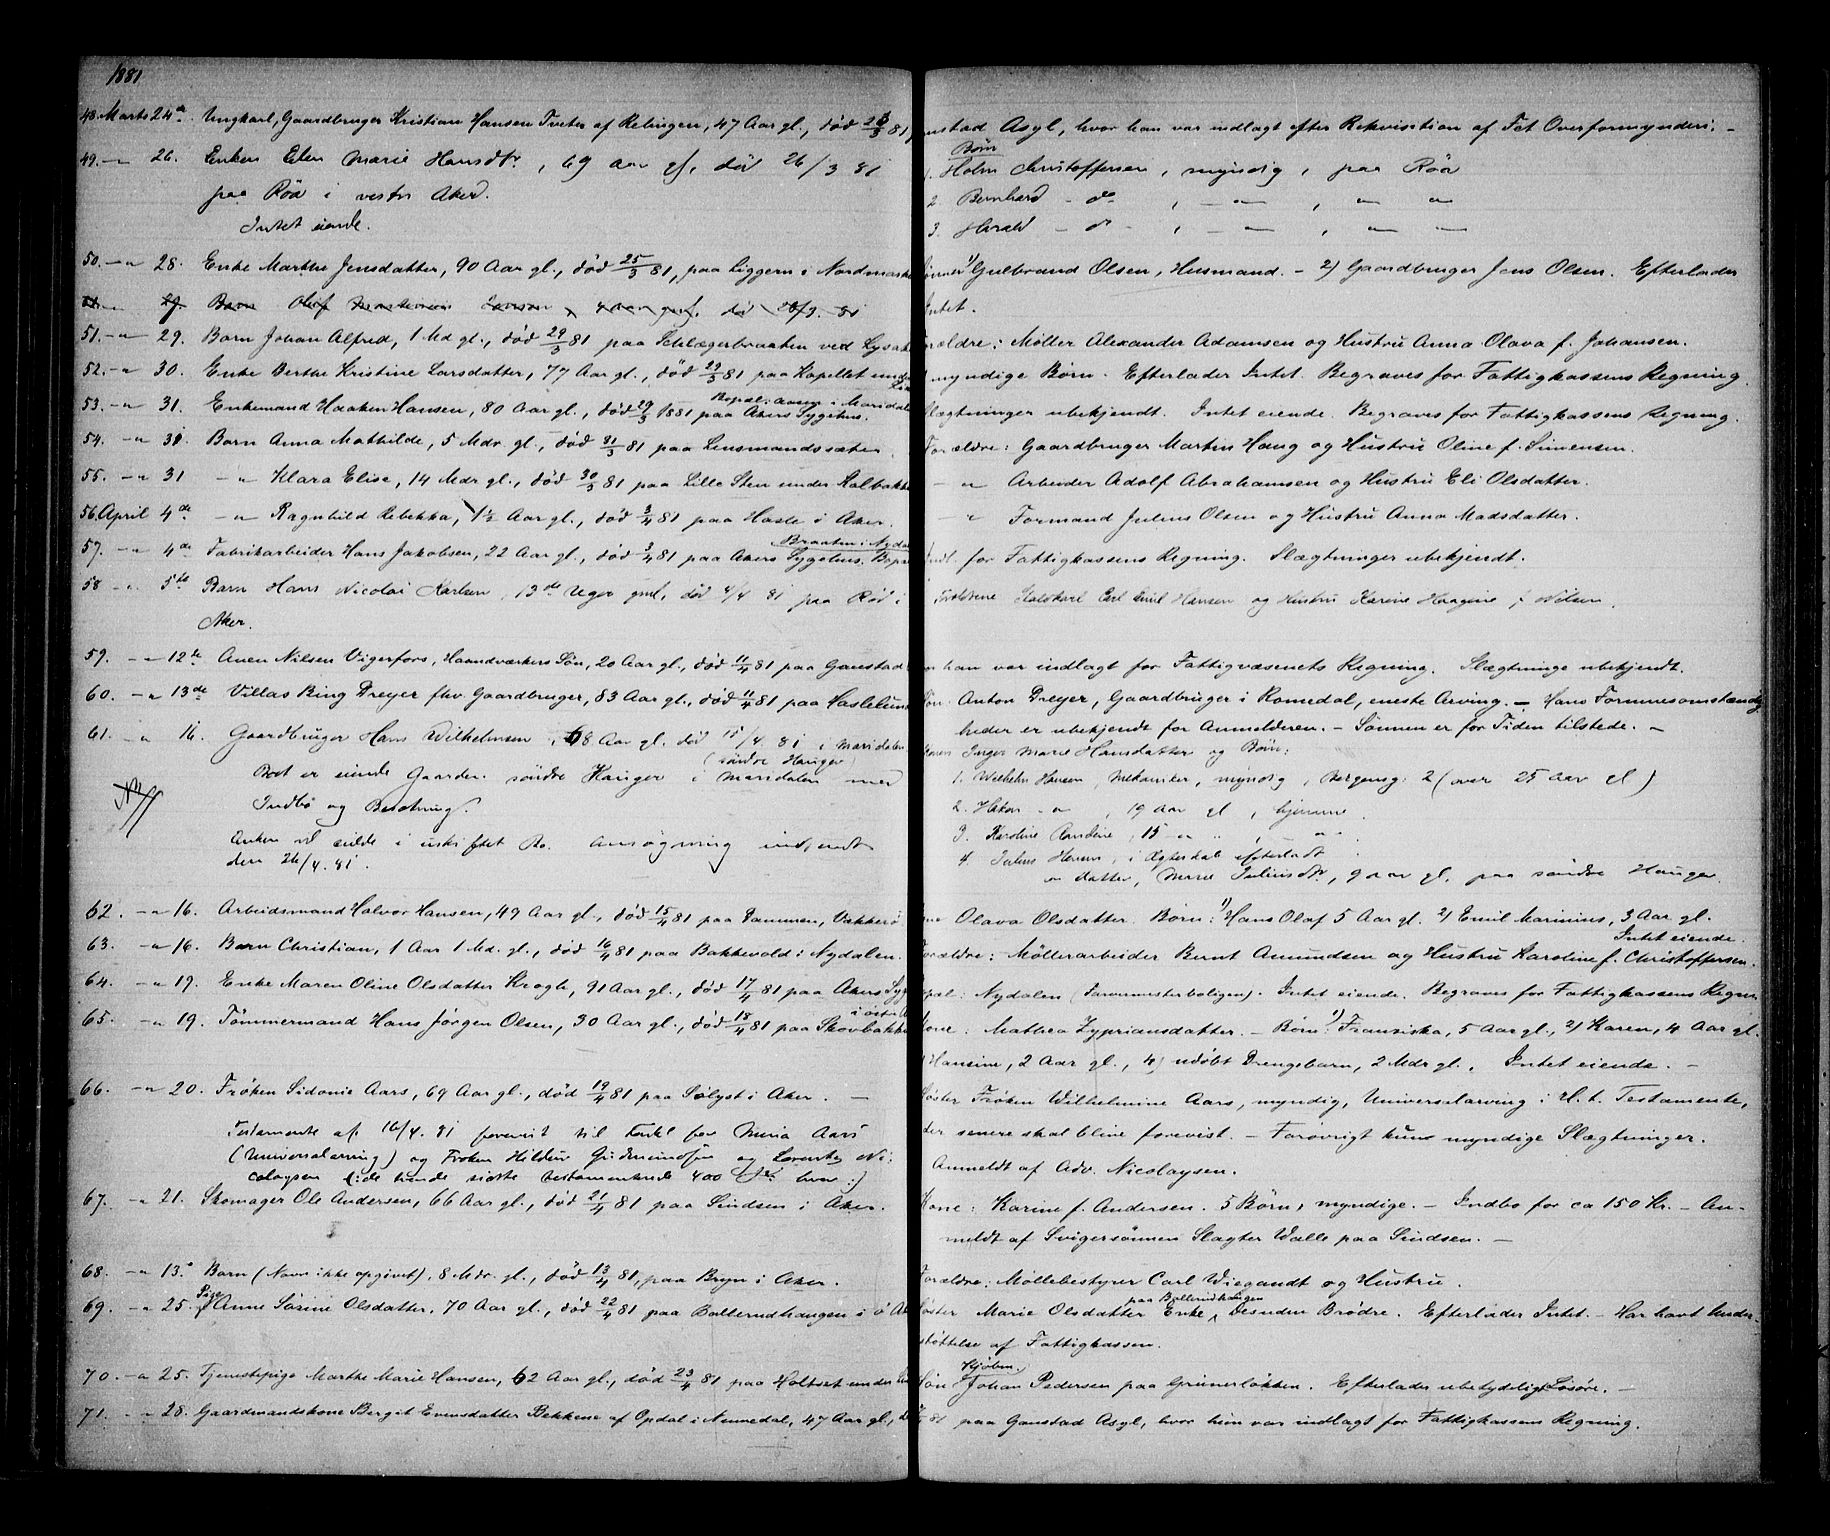 1881
48. Marts 24de Ungkarl, Gaardbruger Kristian Hansen Tveter af Relingen, 47 Aar gl., død 23/3 81
49. -"- 26. Enken Elen Marie Hansdtr., 69 Aar gl., død 26/3 81
paa Röa i vestre Aker.
Intet eiende.
50. -"- 28. Enke Marthe Jensdatter, 90 Aar gl., død 25/3 81, paa Liggern i Nordmarke
29. Barn Olaf 4 Aar gml. død 28/3 81
51. -"- 29. Barn Johan Alfred, 1 Md gl., død 29/3 81 paa Schlægerbraaten ved Lysak
52. -"- 30. Enke Berthe Kristine Larsdatter, 77 Aar gl., død 29/3 81 paa Kapellet under
Bopæl: Aasen i Maridal
53. -"- 31. Enkemand Haaken Hansen, 80 Aar gl., død 29/3 1881 paa Akers Sygehus.
54. -"- 31. Barn Anna Mathilde, 5 Mdr. gl., død 31/3 81 paa Lensmandssæter.
55. -"- 31 -"- Klara Elise, 14 Mdr gl., død 30/3 81 paa Lille Sten under Kalbakke
56. April 4de -"- Ragnhild Rebekka, 1½ Aar gl., død 3/4 81 paa Hasle i Aker.
Braaten i Nydal
57. -"- 4de Fabrikarbeider Hans Jakobsen, 22 Aar gl., død 3/4 81 paa Akers Sygehus. Bopæl
58 -"- 5te Barn Hans Nicolai Karlsen, 13de Uger gml, død 4/4 81 paa Röd i
Aker.
59. -"- 12te Anen Nilsen Vigerfors, Haandværkers Søn, 20 Aar gl., død 11/4 81 paa Gaustad
60. -"- 13de Villas Bing Dreyer fhv. Gaardbruger, 83 Aar gl., død 11/4 81 paa Haslelund
61. -"- 16. Gaardbruger Hans Wilhelmsen, 68 Aar gl. död 15/4 81 i Maridalen
(söndre Hauger)
Boet er eiende Gaarden söndre Hauger i Maridalen med
Indbo og Besætning.
NB
Enken vil sidde i uskiftet Bo. Ansøgning indsendt
den 26/4. 81.
62. -"- 16. Arbeidsmand Halvor Hansen, 49 Aar gl., død 15/4 81 paa Dammen, Vækkerö
63. -"- 16. Barn Christian, 1 Aar 1 Md. gl., død 16/4 81 paa Bakkevold i Nydalen.
64. -"- 19. Enke Maren Oline Olsdatter Krogh, 91 Aar gl., død 17/4 81 paa Akers Syg
i østre A
65. -"- 19. Tømmermand Hans Jørgen Olsen, 30 Aar gl., død 18/4 81 paa Skovbakke
66. -"- 20. Frøken Sidonie Aars, 69 Aar gl., død 19/4 81 paa Sølyst i Aker. —
Testamente af 16/4. 81 forevist til Fordel for Aars
(Universalarving) og Frøken Hildur og Ni-
colaysen (:de tvende sidste testamenterede 400 hver:)
67. -"- 21. Skomager Ole Andersen, 66 Aar gl., død 21/4 81 paa Sindsen i Aker.
68. -"- 13. Barn (Navn ikke opgivet), 8 Mdr. gl., død 13/4 81, paa Bryn i Aker.
69. -"- 25. Pige Anne Sørine Olsdatter, 70 Aar gl., død 22/4 81 paa Ballerudhaugen i ö Ak
70. -"- 25. Tjenestepige Marthe Marie Hansen, 62 Aar gl., død 23/4 81 paa Holtset under
71. -"- 28. Gaardmandskone Bergit Evensdatter Bekkene af Opdal i Numedal, 47 Aar gl., d
ustad Asyl, hvor han var indlagt efter Rekvisition af Fet Overformynderi. —
Børn
1. Holm Christoffersen, myndig, paa Röa
2. Bernhard - do , -"- , " "
3. Harald - do , -"- , " "
Sønner 1) Gulbrand Olsen, Husmand. - 2) Gaardbruger Jens Olsen. Efterlader
Intet.
Forældre: Møller Alexander Adamsen og Hustru Anna Olava f. Johansen.
myndige Børn. Efterlader Intet. Begraves for Fattigkassens Regning.
Slægtninger ubekjendt. Intet eiende. Begraves for Fattigkassens Regning.
Forældre: Gaardbruger Martin Haug og Hustru Oline f. Simensen.
-"- Arbeider Adolf Abrahamsen og Hustru Eli Olsdatter.
-"- Formand Julius Olsen og Hustru Anna Madsdatter.
Indl. for Fattigkassens Regning. Slægtninger ubekjendt.
Forældrene Staldkarl Carl Emil Hansen og Hustru Karine Haagine f. Nilsen.
an han var indlagt for Fattigvæsenets Regning. Slægtninge ubekjendt.
Søn: Anton Dreyer, Gaardbruger i Romedal, eneste Arving. — Hans Formuesomstændig-
heder er ubekjendt for Anmelderen. — Sønnen er for Tiden tilstede. —
Konen Inger Marie Hansdatter og Børn:
1. Wilhelm Hansen, Mekaniker, myndig, Bergensg: 2 (over 25 Aar gl)
2. Hakon -"- , 19 Aar gl, hjemme.
3. Karoline Randine, 15 -"- " , -"-
4. Julius Hansen, i Ægteskab efterladt
en datter, Marie Juliusdtr, 9 Aar gl. paa söndre Hauger.
ne Olava Olsdatter. Børn: 1) Hans Olaf 5 Aar gl. 2) Emil Marinius, 3 Aar gl.
Intet eiende.
Forældre: Møllerarbeider Bernt Amundsen og Hustru Karoline f. Christoffersen.
pæl: Nydalen (Farvermesterboligen). Intet eiende. Begraves for Fattigkassens Regn
Kone: Mathea Zypriansdatter. — Børn: 1) Fransiska, 5 Aar gl., 2) Karen, 4 Aar gl.
Hansine, 2 Aar gl., 4) udøbt Drengebarn, 2 Mdr gl. Intet eiende. —
Søster Frøken Wilhelmine Aars, myndig, Universalarving i H. t. Testamente,
der senere skal blive forevist. — Forøvrigt kun myndige Slægtninger.
Anmeldt af Adv. Nicolaysen.
Kone: Karine f. Andersen. 5 Børn, myndige. — Indbo for ca 150 Kr. — An-
meldt af Svigersønnen Slagter Walle paa Sindsen. —
Forældre: Møllebestyrer Carl Wiegandt og Hustru.
paa Ballerudhaugen
Søster Marie Olsdatter Enke, desuden Brødre. Efterlader Intet. — Har havt Under-
støttelse af Fattigkassen.
Kjøbm.
Søn Johan Pedersen paa Grünerløkken. Efterlader ubetydeligt Løsøre. —
81 paa Gaustad Asyl, hvor hun var indlagt for Fattigkassens Regning.